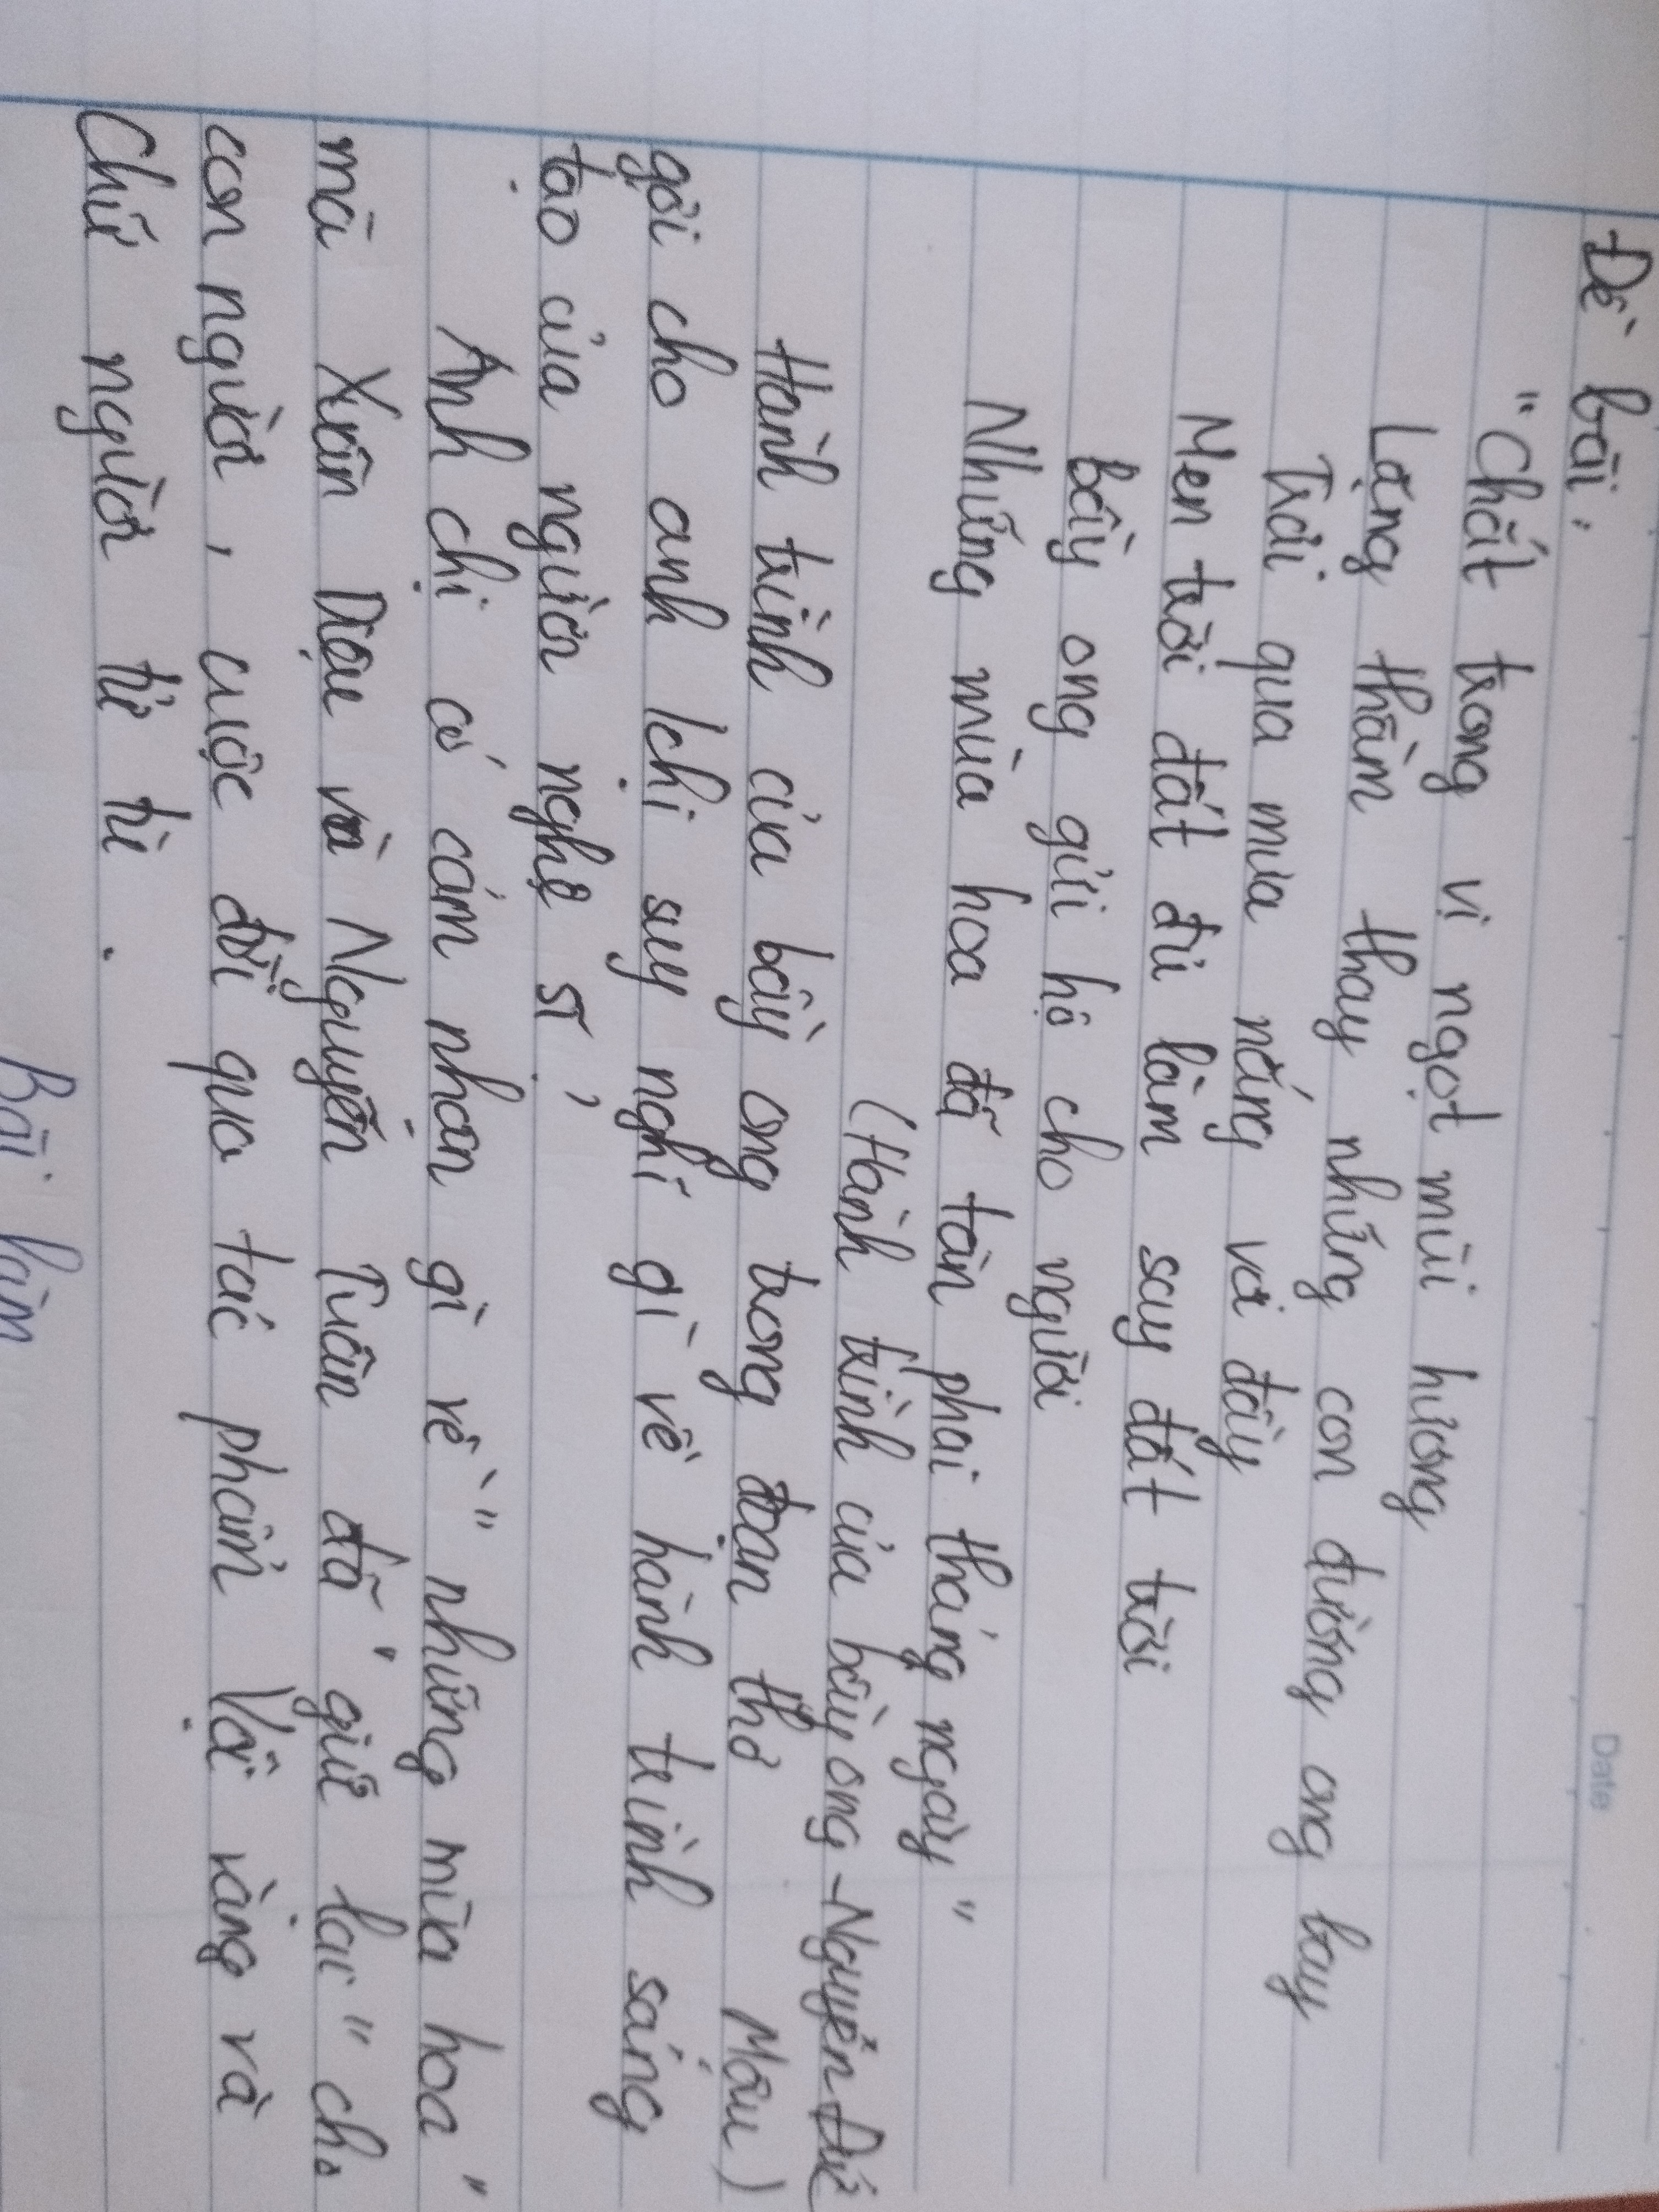 Date
Đề bài:
"Chắt trong vị ngọt mùi hương
Lặng thầm thay những con đường ong bay
Trải qua mưa nắng vơi đầy
Men trời đất đủ làm say đất trời
bầy ong giữ hộ cho người
Những mùa hoa đã tàn phai tháng ngày"
(Hành trình của bầy ong - Nguyễn Đức
Mậu)
Hành trình của bầy ong trong đoạn thơ
gợi cho anh /chị suy nghĩ gì về hành trình sáng
tạo của người nghệ sĩ,
Anh chị có cảm nhận gì về "những mùa hoa"
mà Xuân Diệu và Nguyễn Tuân đã "giữ lại" cho
con người, cuộc đời qua tác phẩm Vội vàng và
Chữ người tử tù.
Bài làm